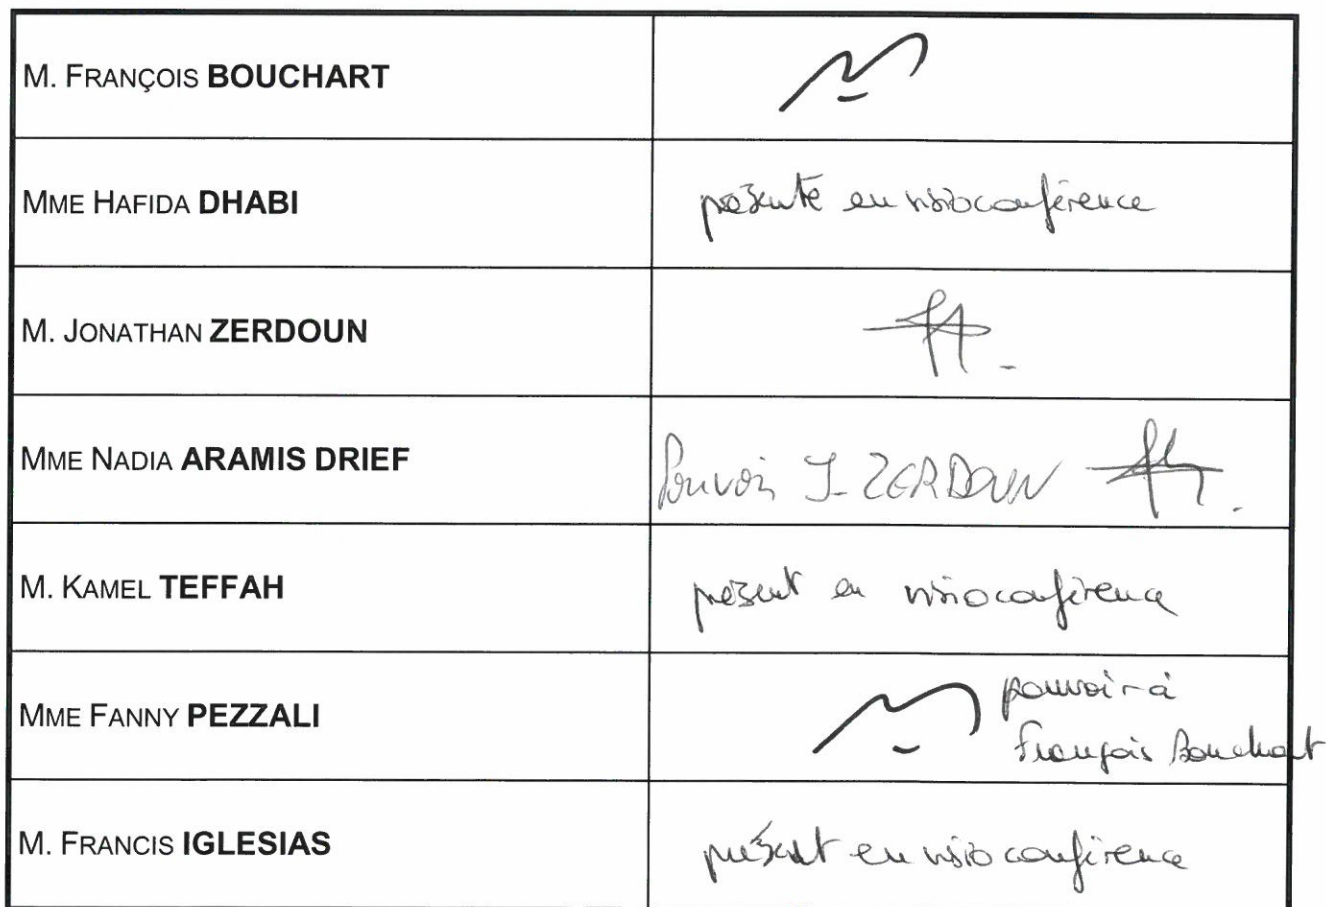 M. FRANÇOIS BOUCHART
MME HAFIDA DHABI
présente en visioconférence
M. JONATHAN ZERDOUN
MME NADIA ARAMIS DRIEF
Pouvoir J. ZERDOUN
M. KAMEL TEFFAH
présent en visioconférence
MME FANNY PEZZALI
pouvoir à
François Bouchart
M. FRANCIS IGLESIAS
présent en visioconférence